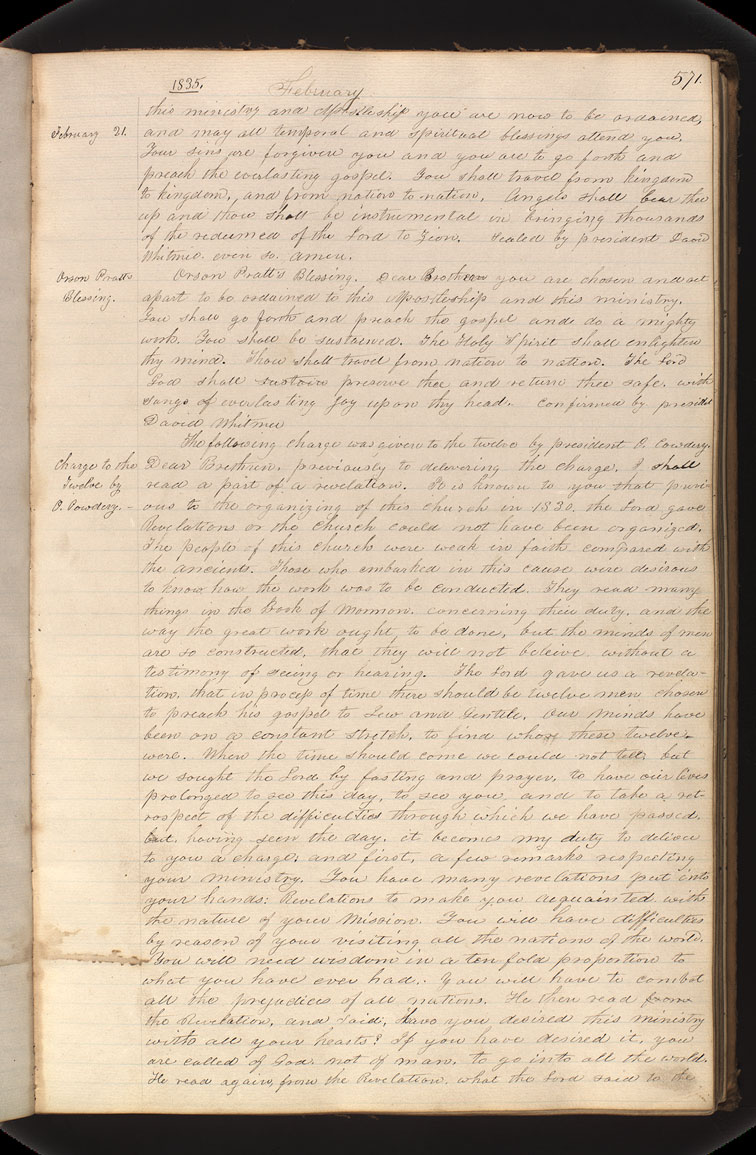 1835. February 571
this ministry and Apostleship you are now to be ordained,
February 21. and may all temporal and spiritual blessings attend you.
Your sins are forgiven you and you are to go forth and
preach the everlasting gospel. You shall travel from kingdom
to kingdom, and from nation to nation. Angels shall bear thee
up and thou shalt be instrumental in bringing thousands
of the redeemed of the Lord to Zion. Sealed by president David
Whitmer even so. amen.
Orson Pratt's Blessing. Orson Pratt's Blessing. Dear Brother you are chosen and set
apart to be ordained to this Apostleship and this ministry.
You shall go forth and preach the gospel and do a mighty
work. You shall be sustained. The Holy Spirit shall enlighten
thy mind. Thou shalt travel from nation to nation. The Lord
God shall sustain preserve thee and return thee safe, with
songs of everlasting Joy upon thy head. Confirmed by presidt
David Whitmer
The following charge was given to the twelve by president O. Cowdery.
Charge to the Twelve by O. Cowdery. Dear Brethren, previously to delivering the charge, I shall
read a part of a revelation. It is known to you that previ-
ous to the organizing of this church in 1830, the Lord gave
Revelations or the church could not have been organized.
The people of this church were weak in faith compared with
the ancients. Those who embarked in this cause were desirous
to know how the work was to be conducted. They read many
things in the Book of Mormon, concerning their duty, and the
way the great work ought to be done, but the minds of men
are so constructed, that they will not beleive, without a
testimony of seeing or hearing. The Lord gave us a revela-
tion, that in process of time there should be twelve men chosen
to preach his gospel to Jew and Gentile. Our minds have
been on a constant stretch, to find who these twelve
were. When the time should come we could not tell, but
we sought the Lord by fasting and prayer, to have our lives
prolonged to see this day, to see you, and to take a ret-
rospect of the difficulties through which we have passed.
but, having seen the day, it becomes my duty to deliver
to you a charge; and first, a few remarks respecting
your ministry. You have many revelations put into
your hands; Revelations to make you acquainted with
the nature of your Mission. You will have difficulties
by reason of your visiting all the nations of the world.
You will need wisdom in a ten fold proportion to
what you have ever had. You will have to combat
all the prejudices of all nations. He then read from
the Revelation, and said, Have you desired this ministry
with all your hearts? If you have desired it, you
are called of God, not of man, to go into all the world.
He read again, from the Revelation, what the Lord said to the